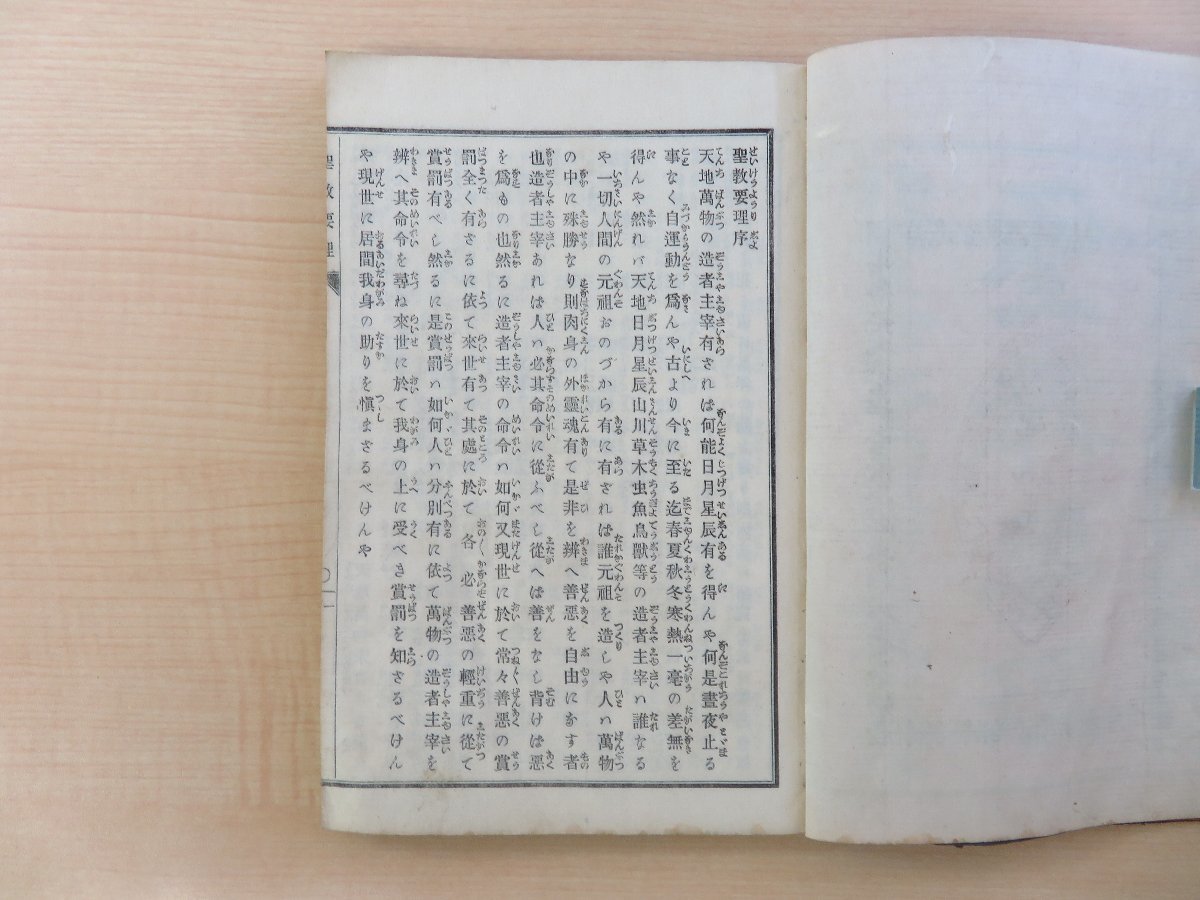 聖教要理序
天地萬物の造者主宰有されば何能日月星辰有を得んや何是晝夜止る
事なく自運動を爲んや古より今に至る迄春夏秋冬寒熱一毫の差無を
得んや然れバ天地日月星辰山川草木虫魚鳥獸等の造者主宰ハ誰なる
や一切人間の元祖おのづから有に有されば誰元祖を造しや人ハ萬物
の中に殊勝なり則肉身の外靈魂有て是非を辨へ善惡を自由になす者
也造者主宰あれば人ハ必其命令に從ふべし從へば善をなし背けば惡
を爲もの也然るに造者主宰の命令ハ如何又現世に於て常々善惡の賞
罰全く有さるに依て來世有て其處に於て各必善惡の輕重に從て
賞罰有べし然るに是賞罰ハ如何人ハ分別有に依て萬物の造者主宰を
辨へ其命令を尋ね來世に於て我身の上に受べき賞罰を知さるべけん
や現世に居間我身の助りを愼まさるべけんや
聖教要理